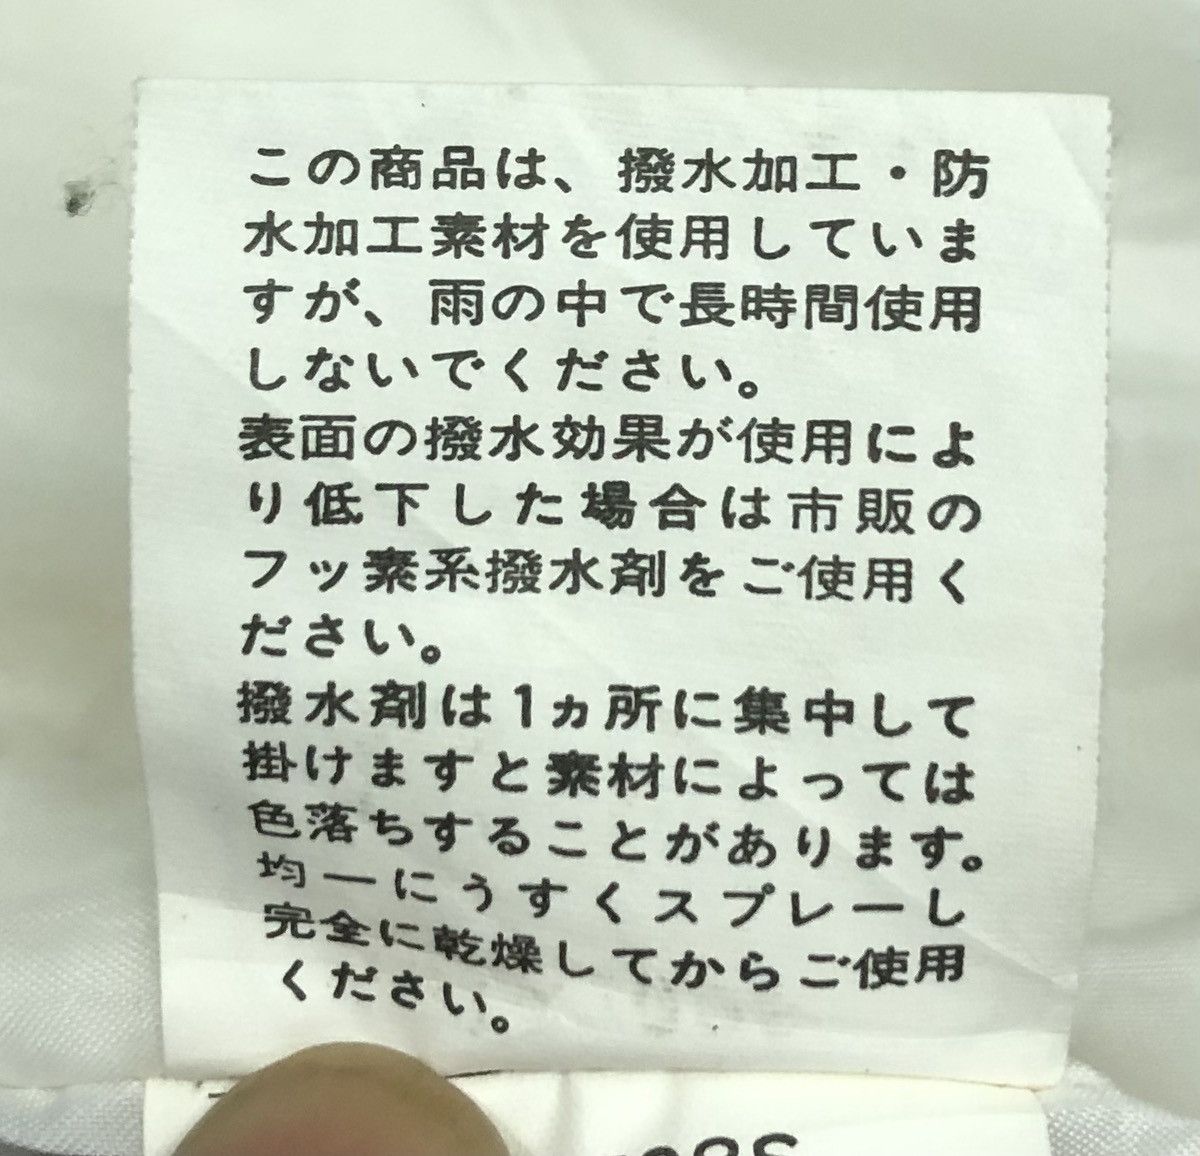 この商品は、撥水加工・防
水加工素材を使用していま
すが、雨の中で長時間使用
しないでください。
表面の撥水効果が使用によ
り低下した場合は市販の
フッ素系撥水剤をご使用く
ださい。
撥水剤は1ヵ所に集中して
掛けますと素材によっては
色落ちすることがあります。
均一にうすくスプレーし
完全に乾燥してからご使用
ください。